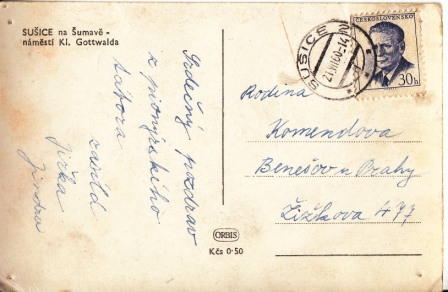 SUŠICE na Šumavě -
náměstí Kl. Gottwalda
Srdečný pozdrav
z pionýrského
tábora
zasílá
Jiřka
Jindra
ORBIS
Kčs 0·50
SUŠICE 2
21.VII.60-14
ČESKOSLOVENSKO
30h
Rodina
Komendova
Benešov u Prahy
Žižkova 477